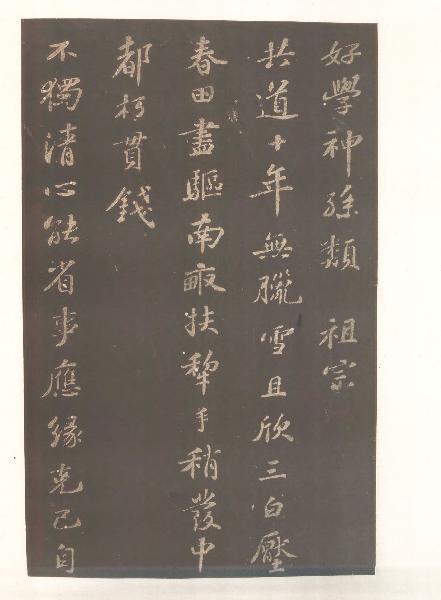 好學神孫類祖宗
共道十年無臘雪且欣三白壓
春田盡驅南畝扶犂手稍發中
都朽貫錢
不獨清心能省事應緣克己自